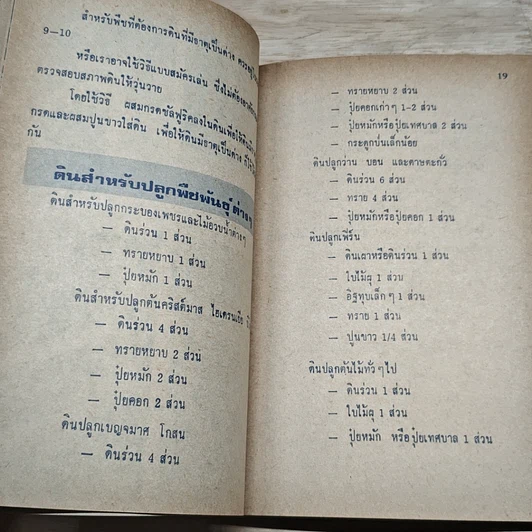 สำหรับพืชที่ต้องการดินที่มีธาตุเป็นด่าง ควร
9—10
หรือเราอาจใช้วิธีแบบสมัครเล่น ซึ่งไม่ต้อง
ตรวจสอบสภาพดินให้วุ่นวาย
โดยใช้วิธี ผสมกรดซัลฟูริคลงในดินเพื่อให้ดิน
กรดและผสมปูนขาวใส่ดิน เพื่อให้ดินมีธาตุเป็นด่าง
กัน
ดินสำหรับปลูกพืชพันธุ์ต่าง
ดินสำหรับปลูกกระบองเพชรและไม้อวบน้ำต่างๆ
— ดินร่วน 1 ส่วน
— ทรายหยาบ 1 ส่วน
— ปุ๋ยหมัก 1 ส่วน
ดินสำหรับปลูกต้นคริสต์มาส ไฮเดรนเยีย
— ดินร่วน 4 ส่วน
— ทรายหยาบ 2 ส่วน
— ปุ๋ยหมัก 2 ส่วน
— ปุ๋ยคอก 2 ส่วน
ดินปลูกเบญจมาศ โกสน
— ดินร่วน 4 ส่วน
19
— ทรายหยาบ 2 ส่วน
— ปุ๋ยคอกเก่าๆ 1–2 ส่วน
— ปุ๋ยหมักหรือปุ๋ยเทศบาล 2 ส่วน
— กระดูกป่นเล็กน้อย
ดินปลูกว่าน บอน และดาษตะกั่ว
— ดินร่วน 6 ส่วน
— ทราย 4 ส่วน
— ปุ๋ยหมักหรือปุ๋ยคอก 1 ส่วน
ดินปลูกเฟิร์น
— ดินเผาหรือดินร่วน 1 ส่วน
— ใบไม้ผุ 1 ส่วน
— อิฐทุบเล็กๆ 1 ส่วน
— ทราย 1 ส่วน
— ปูนขาว 1/4 ส่วน
ดินปลูกต้นไม้ทั่วๆไป
— ดินร่วน 1 ส่วน
— ใบไม้ผุ 1 ส่วน
— ปุ๋ยหมัก หรือปุ๋ยเทศบาล 1 ส่วน